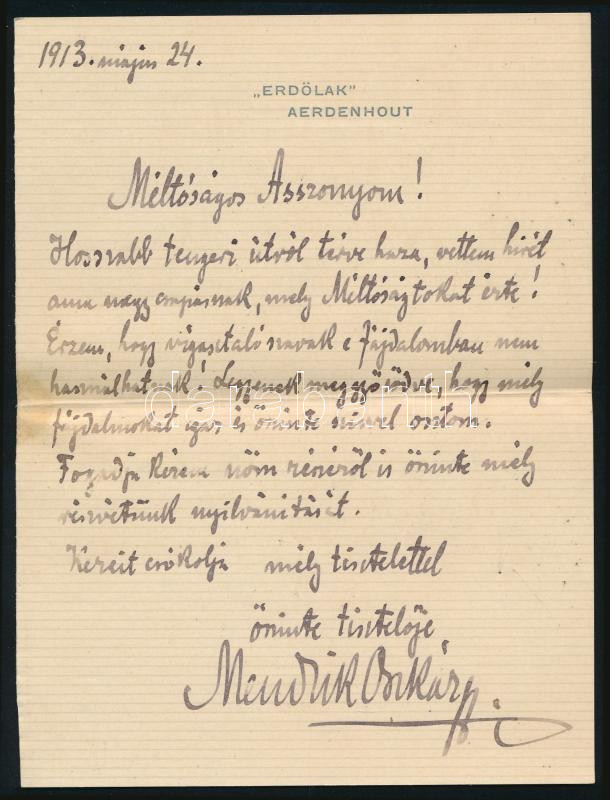 1913. május 24.
„ERDŐLAK”
AERDENHOUT
Méltóságos Asszonyom!
Hosszabb tengeri útról térve haza, vettem hírét
ama nagy csapásnak, mely Méltóságtokat érte!
Érzem, hogy vigasztaló szavak e fájdalomban nem
használhatnak! Legyenek meggyőződve, hogy mély
fájdalmokat igaz és őszinte szívvel osztom.
Fogadja kérem nőm részéről is őszinte mély
részvétünk nyilvánítását.
Kezeit csókolja mély tisztelettel
őszinte tisztelője
Mendlik Oszkár
darabanth